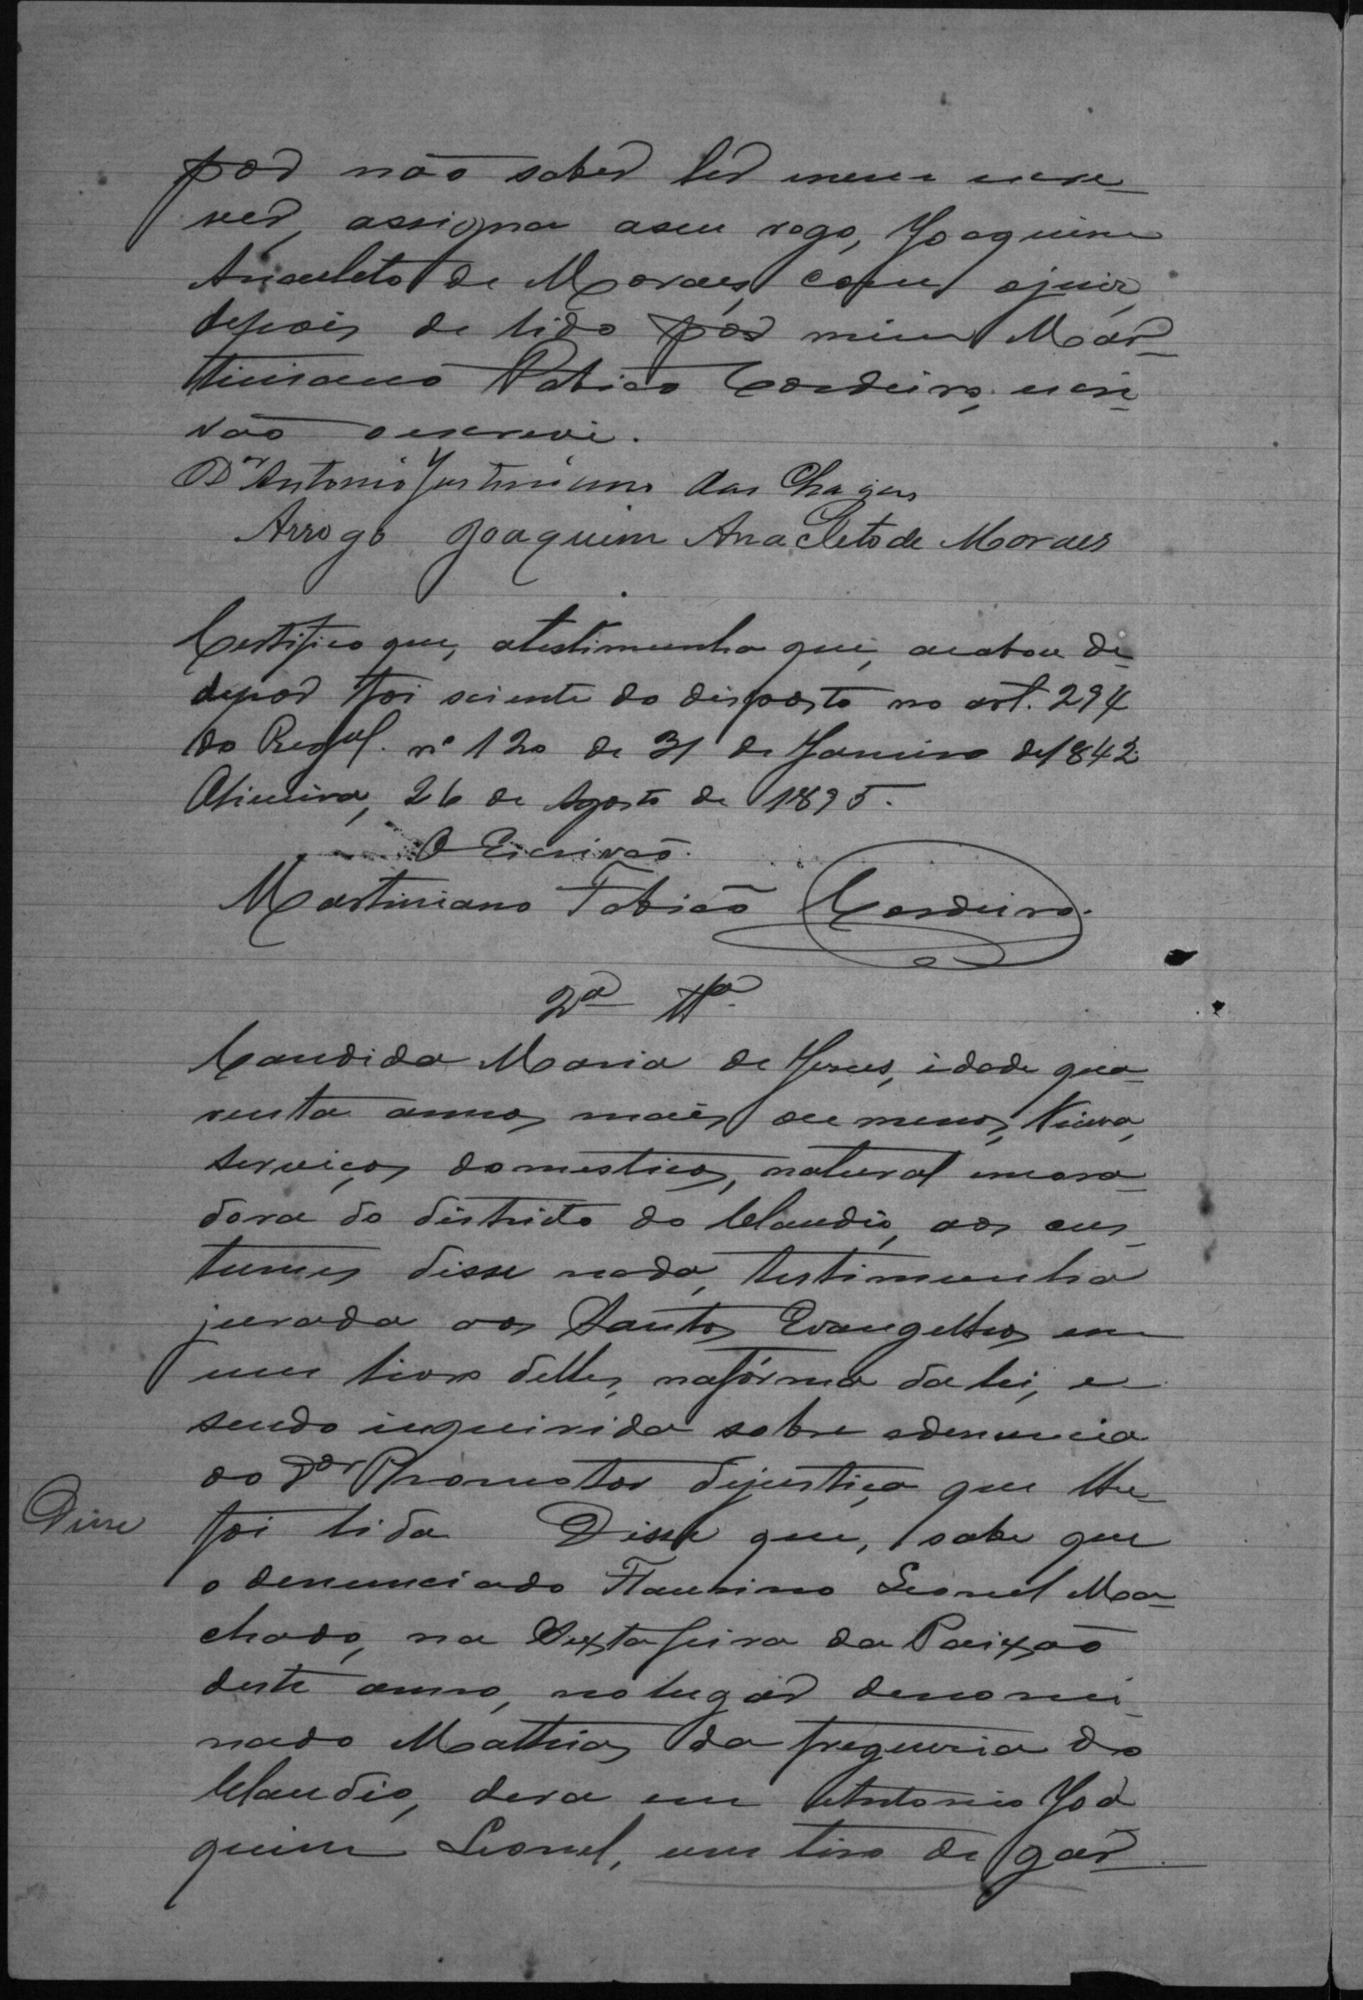 por não saber ler nem escre-
ver, assigna aseu rogo, Joaquim
Anacleto de Moraes, com ojuiz,
depois de lido por mim Mar-
tiniano Fabião Cordeiro, escri-
vão oescrevi.
Dr Antonio Justiniano das Chagas
Arrogo Joaquim Anacleto de Moraes
Certifico que, atestimunha que, acabou de
depor foi sciente do disposto no art. 294
do Regul. nº 120 de 31 de Janeiro de 1842
Oliveira, 26 de Agosto de 1895.
O Escrivão.
Martiniano Fabião Cordeiro.
2ª Tª
Candida Maria de Jesus, idade qua-
renta annos mais ou menos, Viuva,
serviços domesticos, natural emora-
dora do districto do Claudio, aos cus-
tumes disse nada, testimunha
jurada aos Santos Evangelhos em
um livro delles, nafórma da lei, e
sendo inquirida sobre adenuncia
do Dor Promotor dejustiça que lhe
Disse foi lida Disse que, sabe que
o denunciado Flausino Leonel Ma-
chado, na Sexta feira da Paixão
deste anno, nolugar denomi-
nado Mathias da freguesia do
Claudio, dera em Antonio Joa
quim Leonel, um tiro de gar-